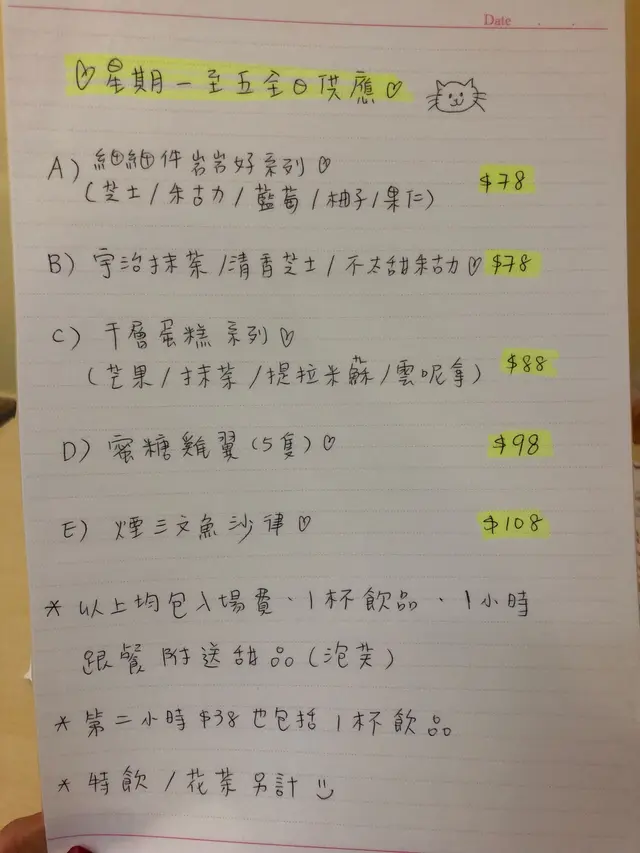 Date . .
♡星期一至五全日供應♡
A) 細細件岩岩好系列♡
$78
(芝士/朱古力/藍莓/柚子/果仁)
B) 宇治抹茶/清香芝士/不太甜朱古力♡ $78
C) 千層蛋糕系列♡
(芒果/抹茶/提拉米蘇/雲呢拿) $88
D) 蜜糖雞翼(5隻)♡ $98
E) 煙三文魚沙律♡ $108
* 以上均包入場費、1杯飲品、1小時
跟餐附送甜品(泡芙)
* 第二小時$38也包括1杯飲品
* 特飲/花茶另計